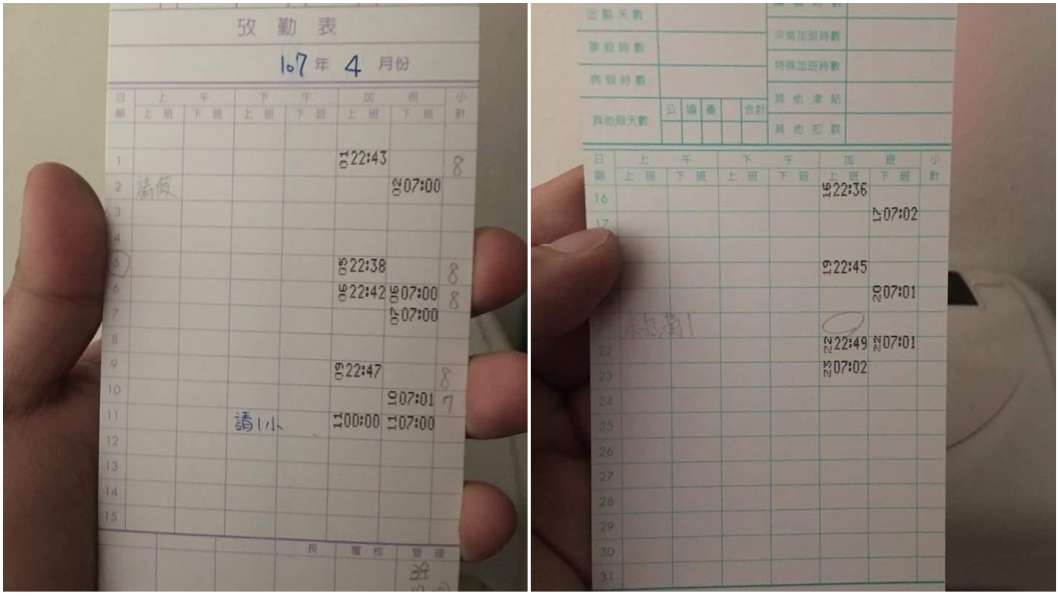 攷勤表
107年 4 月份
日期 上午 下午 加班 小計
上班 下班 上班 下班 上班 下班
1 01 22:43 8
2 請假 02 07:00
3
4
5 05 22:38 8
6 06 22:42 06 07:00 8
7 07 07:00
8
9 09 22:47 8
10 10 07:01 7
11 請1小 11 00:00 11 07:00
12
13
14
15
長 覆核 管理
出勤天數
事假時數 平常加班時數
病假時數 特殊加班時數
其他假天數 公 婚 喪 合計 其他津貼
其他扣款
日期 上午 下午 加班 小計
上班 下班 上班 下班 上班 下班
16 16 22:36
17 17 07:02
19 22:45
20 07:01
22 22 22:49 22 07:01
23 23 07:02
24
25
26
27
28
29
30
31